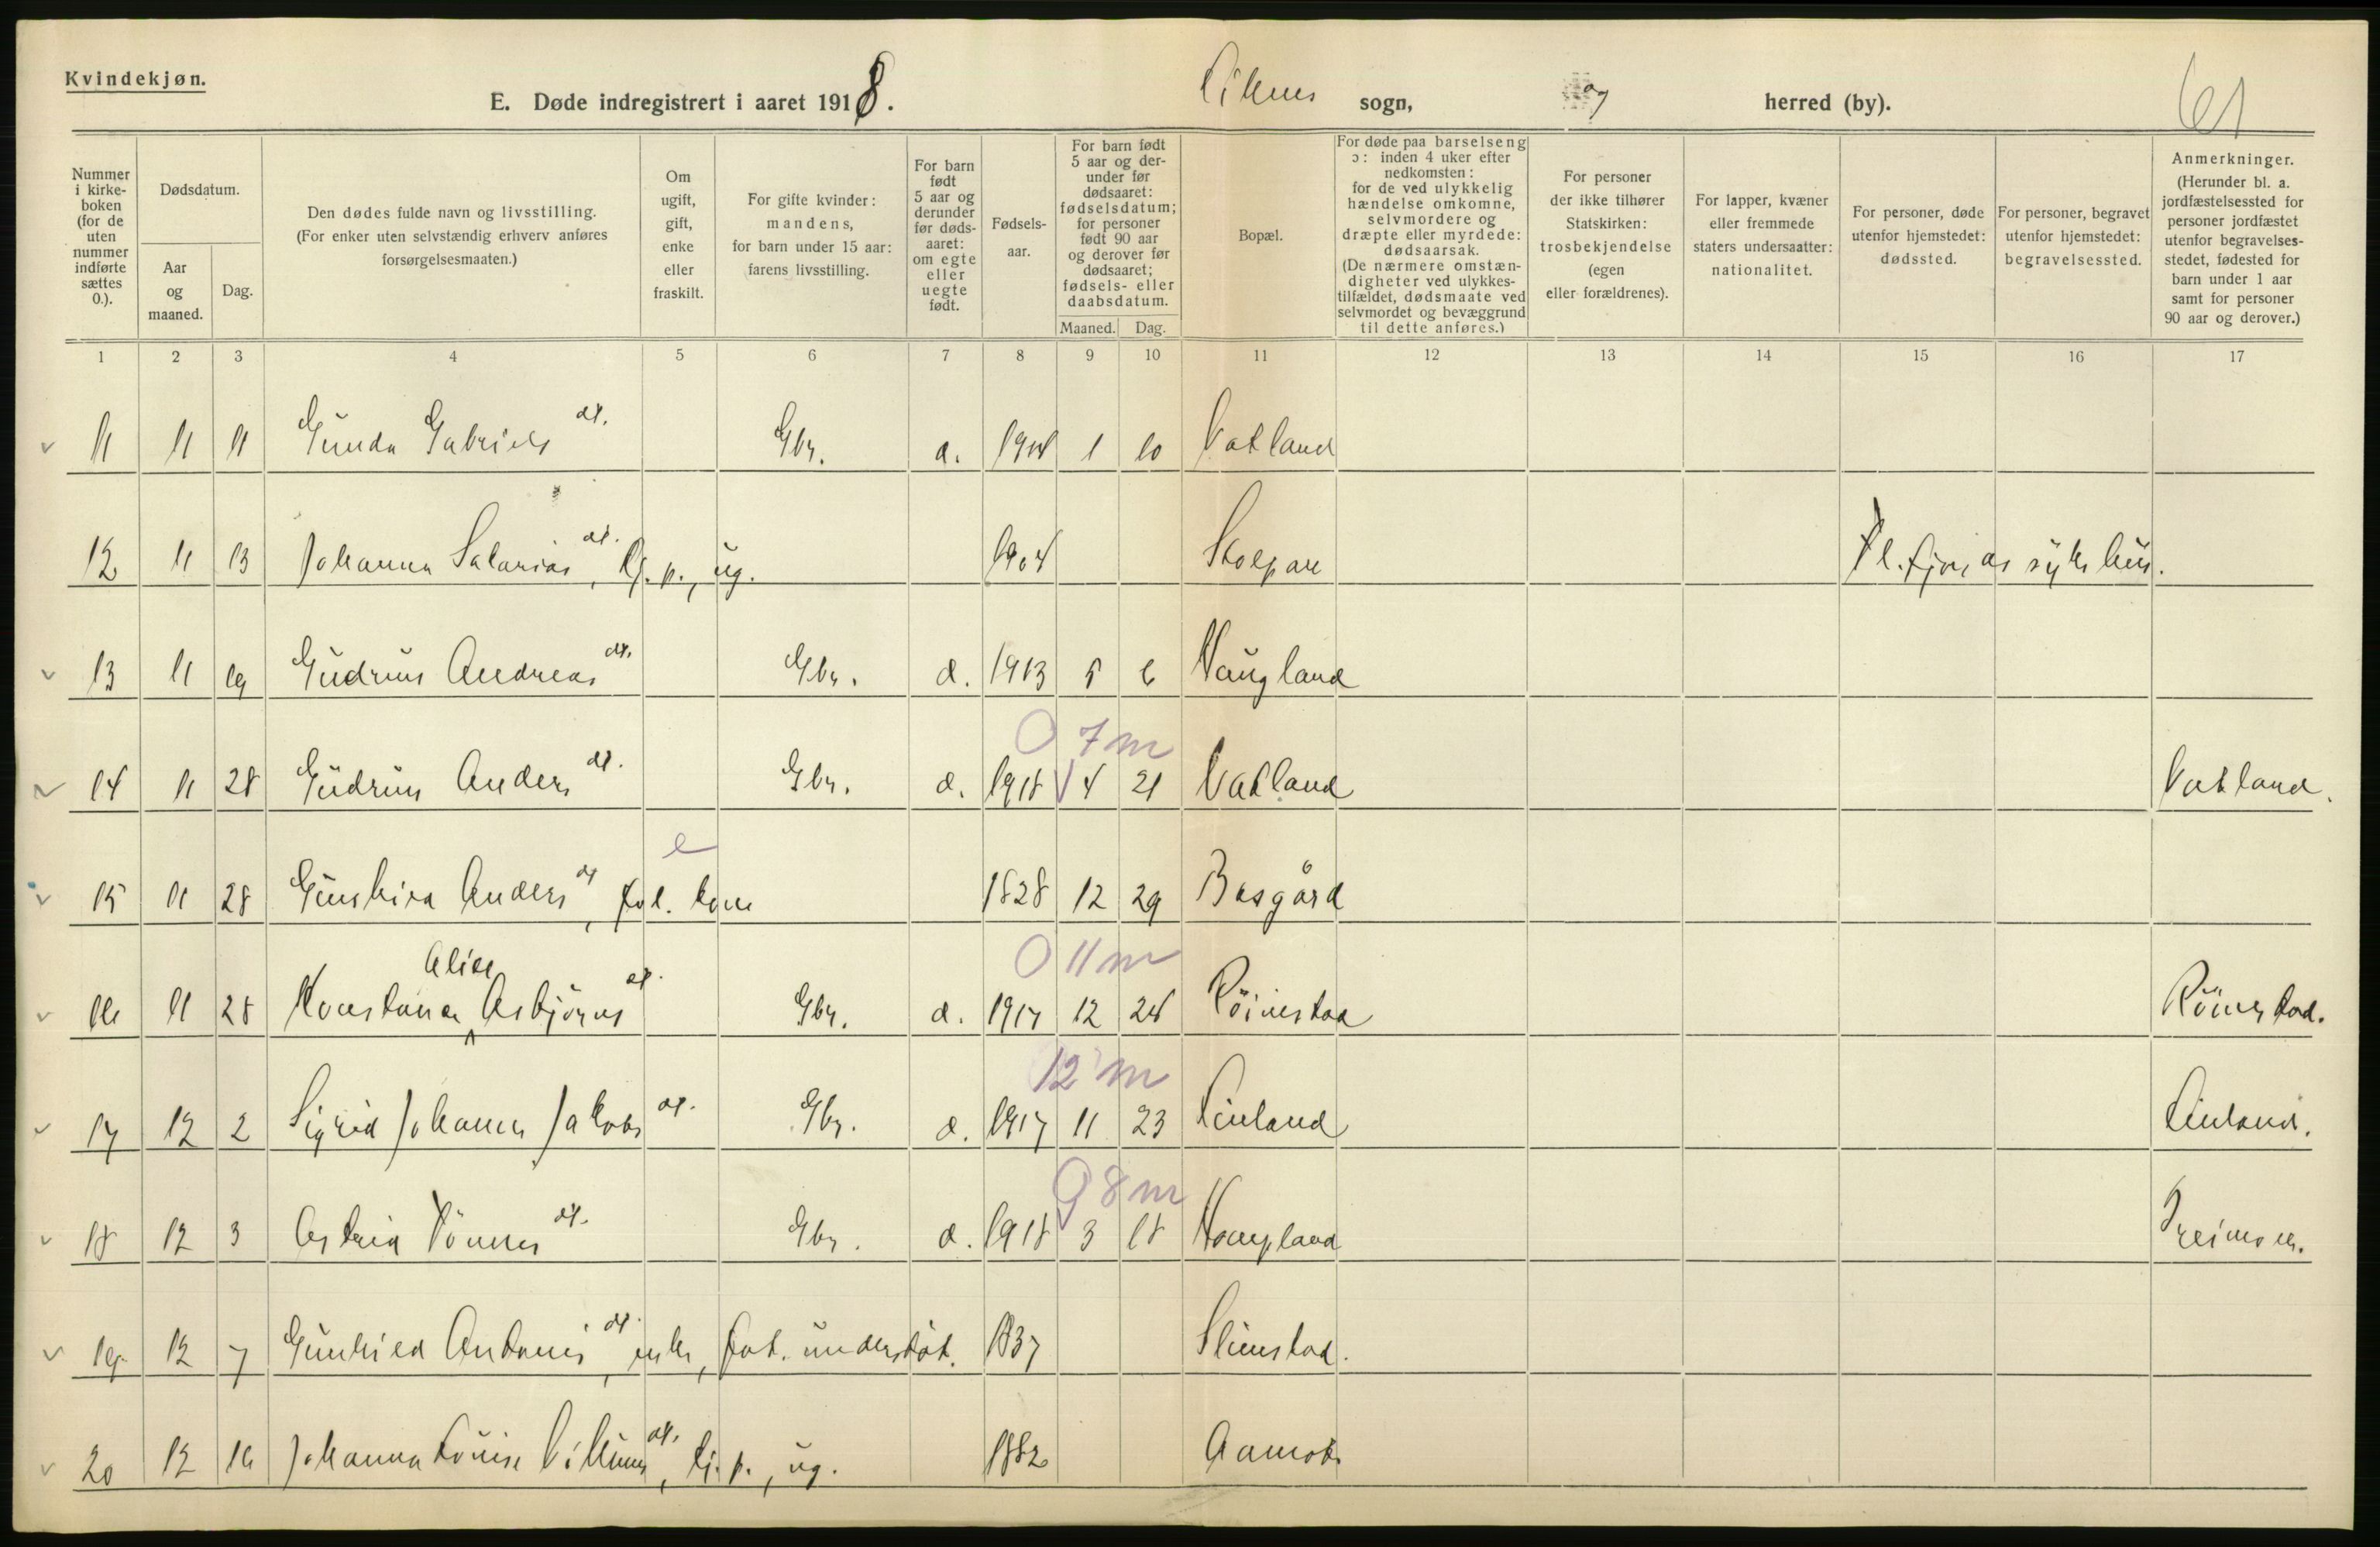 Kvindekjøn.
E. Døde indregistrert i aaret 1918. sogn, og herred (by). 61
Nummer i kirkeboken (for de uten nummer indførte sættes 0.).
Dødsdatum.
Aar og maaned.
Dag.
Den dødes fulde navn og livsstilling. (For enker uten selvstændig erhverv anføres forsørgelsesmaaten.)
Om ugift, gift, enke eller fraskilt.
For gifte kvinder: mandens, for barn under 15 aar: farens livsstilling.
For barn født 5 aar og derunder før dødsaaret: om egte eller uegte født.
Fødselsaar.
For barn født 5 aar og derunder før dødsaaret: fødselsdatum; for personer født 90 aar og derover før dødsaaret; fødsels- eller daabsdatum.
Maaned.
Dag.
Bopæl.
For døde paa barselseng ɔ: inden 4 uker efter nedkomsten: for de ved ulykkelig hændelse omkomne, selvmordere og dræpte eller myrdede: dødsaarsak. (De nærmere omstændigheter ved ulykkestilfældet, dødsmaate ved selvmordet og bevæggrund til dette anføres.)
For personer der ikke tilhører Statskirken: trosbekjendelse (egen eller forældrenes).
For lapper, kvæner eller fremmede staters undersaatter: nationalitet.
For personer, døde utenfor hjemstedet: dødssted.
For personer, begravet utenfor hjemstedet: begravelsessted.
Anmerkninger. (Herunder bl. a. jordfæstelsessted for personer jordfæstet utenfor begravelsesstedet, fødested for barn under 1 aar samt for personer 90 aar og derover.)
1 2 3 4 5 6 7 8 9 10 11 12 13 14 15 16 17
11 11 11 Gunda Gabriels dt. Gbr. 1 10 Vatland
12 11 13 Johanna dt. tj. p., ug. 1904 sykehus.
13 11 19 Gudrun Andreas dt. Gbr. 1913 5 6 Haugland
0 7 m
14 11 28 Gudrun Anders dt. Gbr. 1918 4 21 Vatland Vatland.
e
15 11 28 Gunhild Anders dt, 1828 12 29 Bosgård
0 11 m
Alise
16 11 28 Konstance Asbjørns dt. Gbr. 1917 12 24 Röinestad Röinestad.
12 m
17 12 2 Sigrid Johanne Jakobs dt. Gbr. 1917 11 23
0 8 m
18 12 3 Astrid Tönnes dt. Gbr. 1918 3 18
19 12 7 Gunhild dt., enke, fat. understöt. 1837
20 12 16 Johanna Louise dt., tj. p., ug. 1882 Aamot